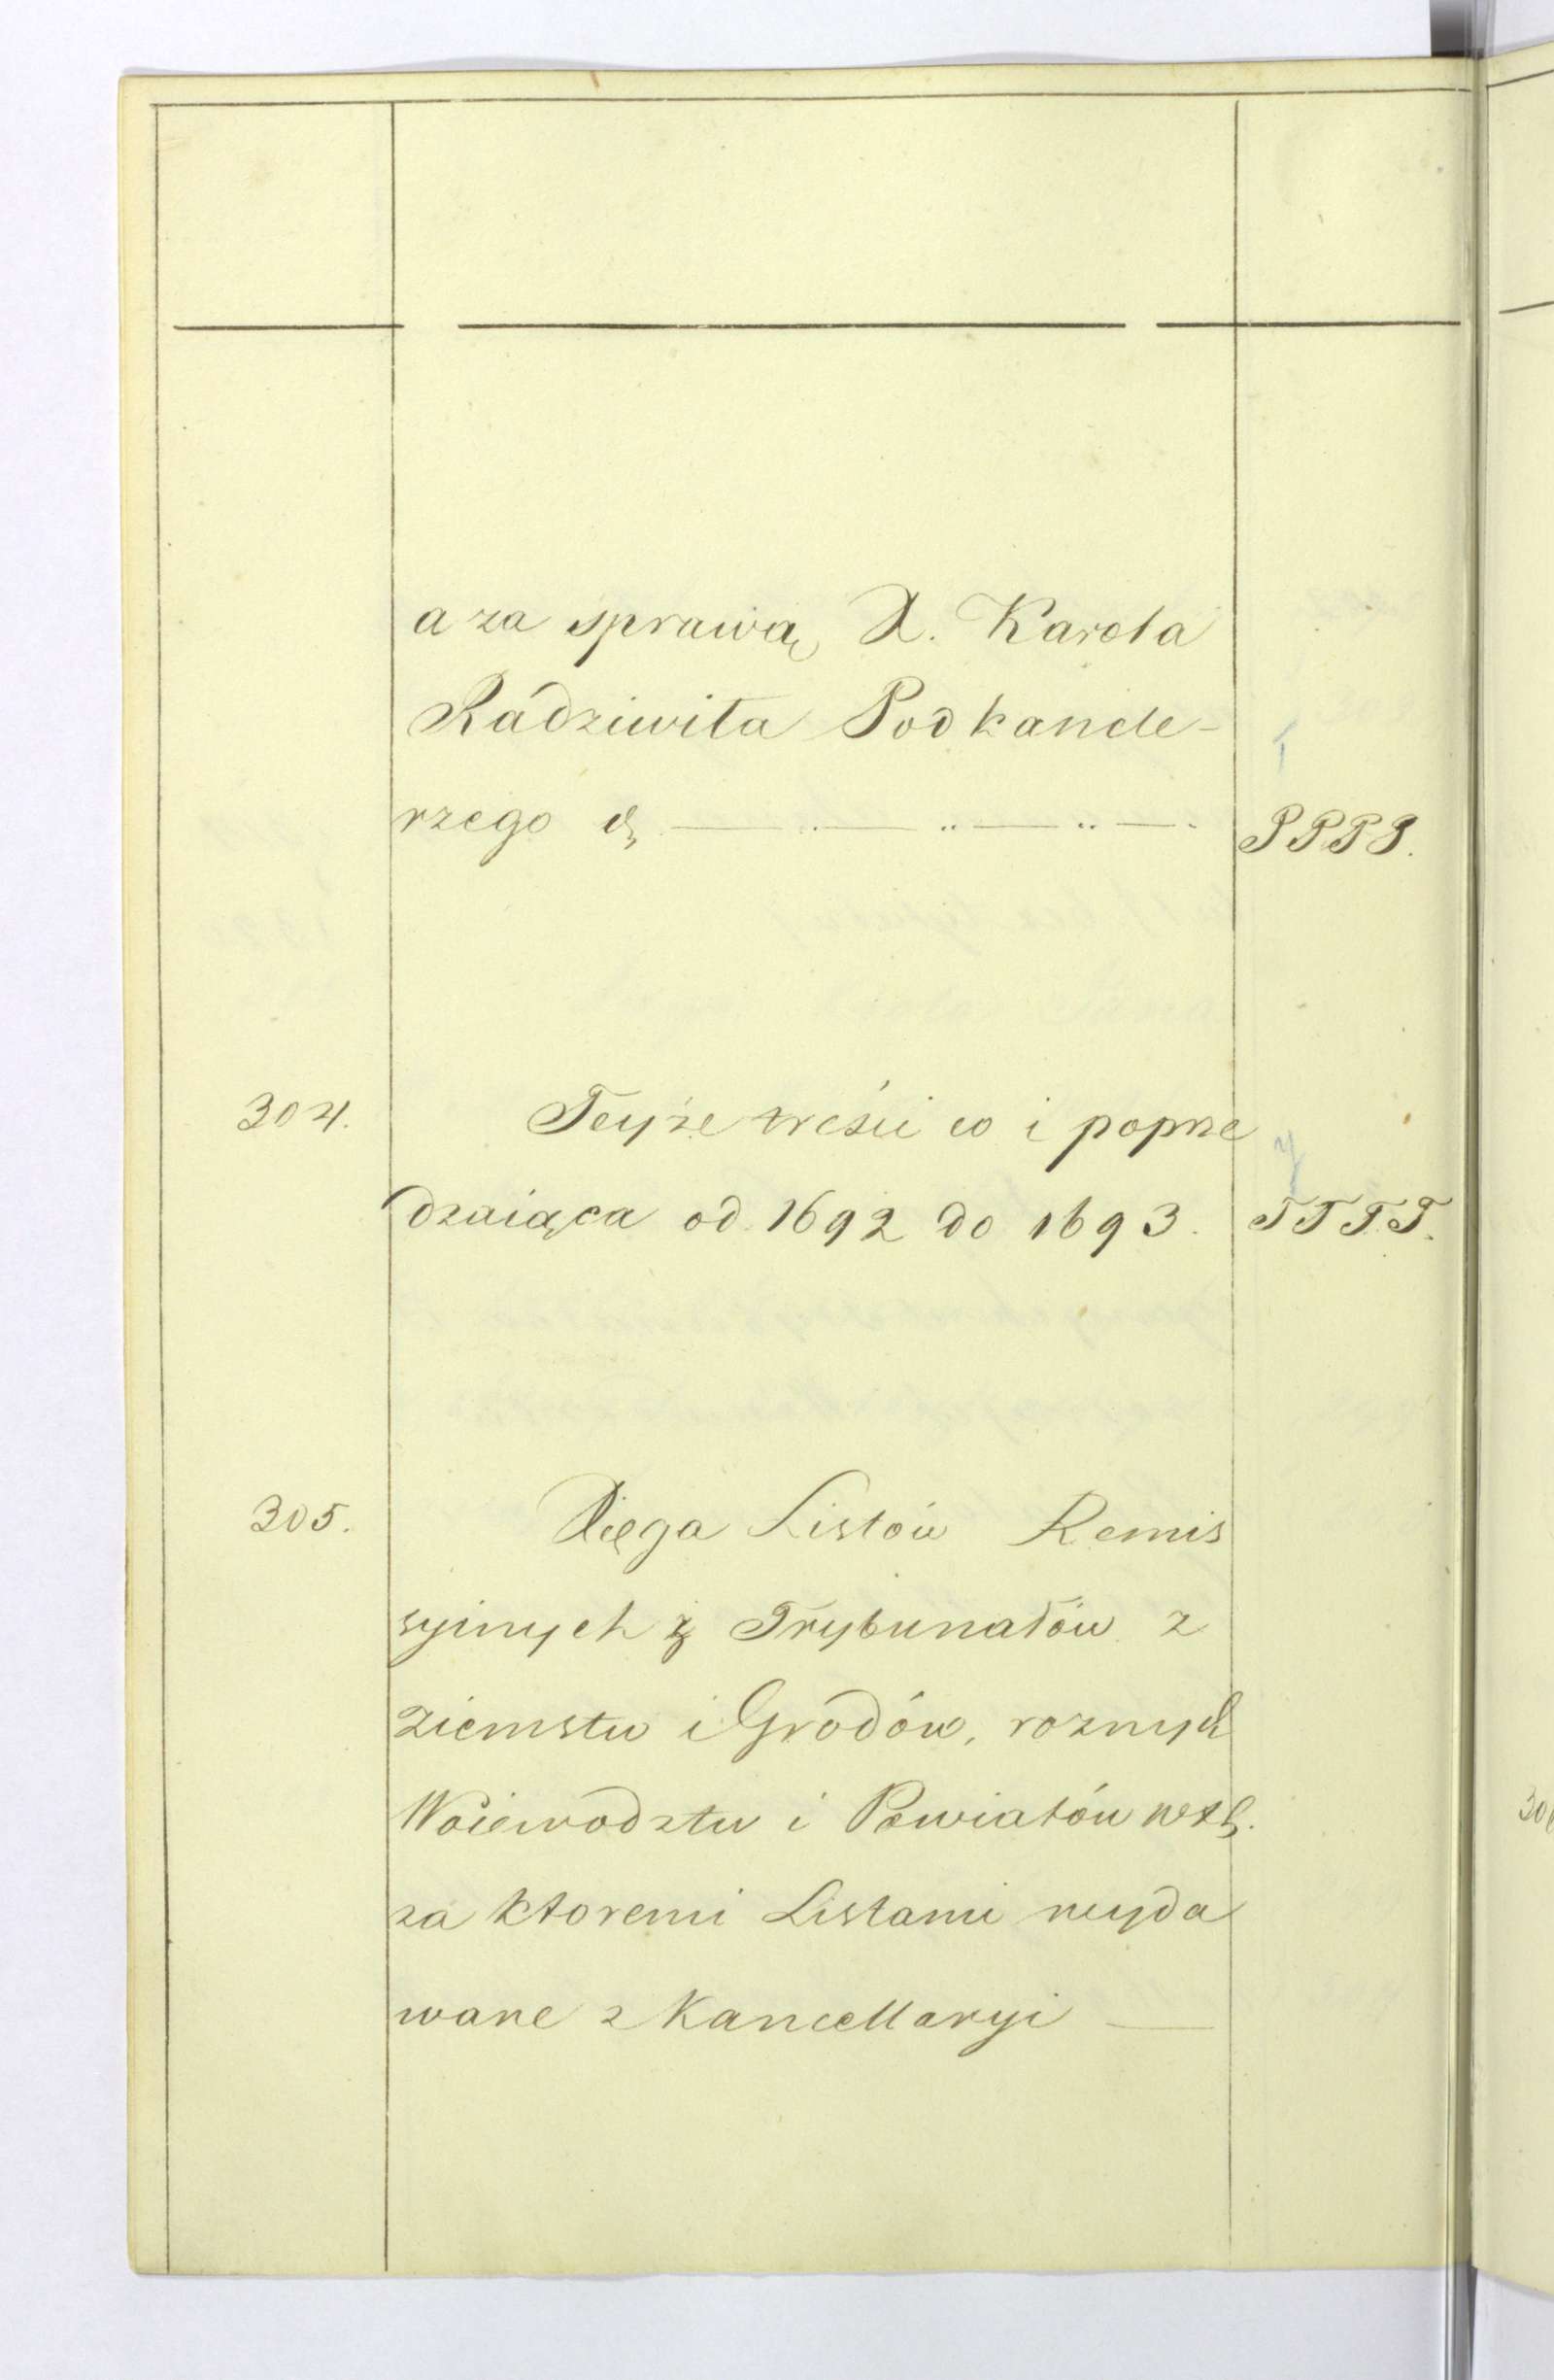 a za sprawą X. Karola
Rádziwiła Podkancle-
rzego &
PPPP.
304. Teyże treści co i poprze
dzaiąca od 1692 do 1693. TTTT.
305. Xięga Listów Remis
syinych z Trybunałów z
ziemstw i Grodów, roznych
Woiewodztw i Powiatów WXL.
za ktoremi Listami wyda
wane z Kancellaryi